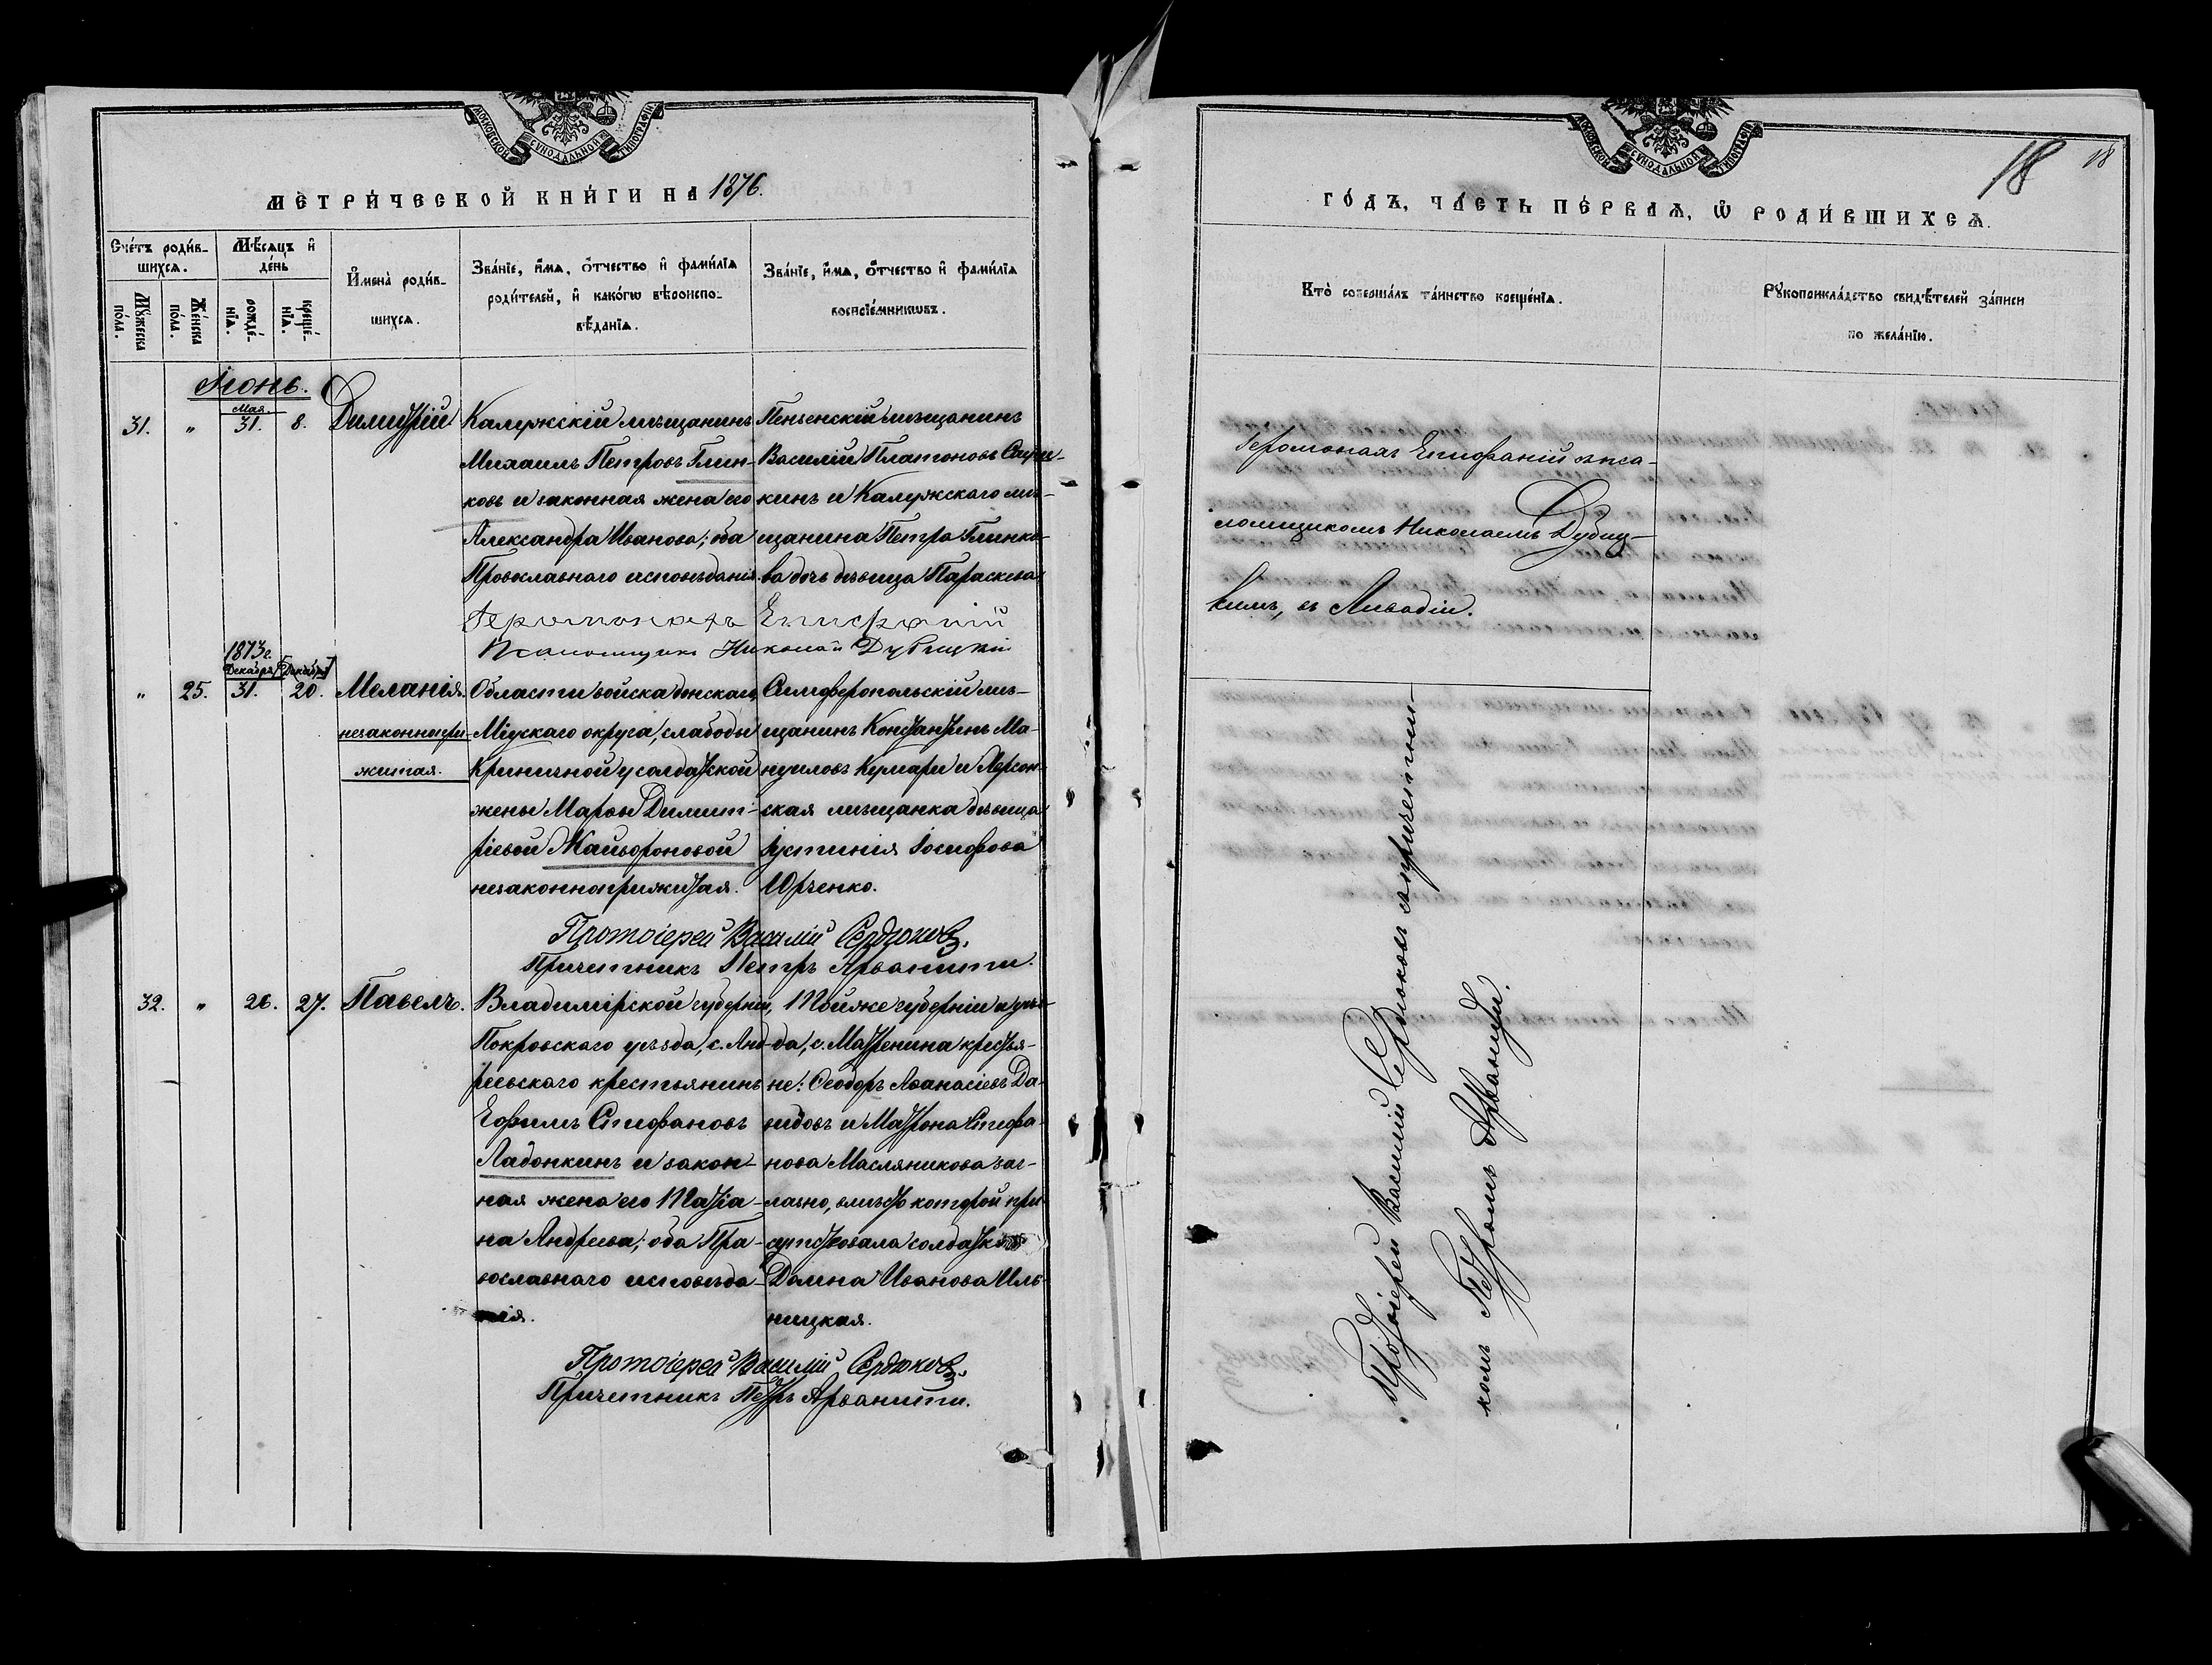 МОСКОВСКОЙ СѴНОДАЛЬНОЙ ТИПОГРАФІИ
МЕТРИ́ЧЕСКОЙ КНИ́ГИ НА 1876.
Сче́тъ роди́в-
шихсѧ.
Мꙋ́жеска
по́ла.
Же́нска
по́ла.
Мѣ́сѧцъ и҆
де́нь
рожде́-
нїѧ.
креще́-
нїѧ.
И҆мена̀ роди́в-
шихсѧ.
Зва́нїе, и҆́мѧ, ѻ҆́тчество и҆ фами́лїѧ
роди́телей, и҆ како́гѡ вѣроиспо-
вѣ́данїѧ.
Зва́нїе, и҆́мѧ, ѻ҆́тчество и҆ фами́лїѧ
воспрїе́мникѡвъ.
Іюнь.
31. " Мая 31. 8. Димитрій
Калужскій мѣщанинъ
Михаилъ Петровъ Глин-
ковъ и законная жена его
Александра Иванова; оба
Православнаго исповѣданія.
Пензенскій мѣщанинъ
Василій Платоновъ
кинъ и Калужскаго мѣ-
щанина Петра Глинко-
ва дочь дѣвица Параскева
Іеромонахъ Епифаній
Псаломщикъ Николай Дубицкій
1873 г.
Декабря [Декабря]
" 25. 31. 20. Меланія.
незаконнопри-
житая.
Области войска донскаго,
Міускаго округа, слабоды
Криничной у солдатской
жены Марѳы Димит-
ріевой Майбороновой
незаконноприжитая.
Симферопольскій мѣ-
щанинъ Константинъ Ма-
нуиловъ Кумари и Херсон-
ская мѣщанка дѣвица
Іустинія Іосифова
Юрченко.
Протоіерей Василій Сердюковъ.
Причетникъ Петръ Арванити.
32. " 26. 27. Павелъ.
Владимірской губерніи,
Покровскаго уѣзда, с. Анд-
реевскаго крестьянинъ
Ефимъ Стефановъ
Ладонкинъ и закон-
ная жена его Татіа-
на Андреева; оба Пра-
вославнаго исповѣда-
нія.
Той же губерніи и уѣз-
да, с. Матренина крестья-
не: Ѳеодоръ Аѳанасіевъ Да-
видовъ и Матрона Стефа-
нова Масляникова заг-
лазно, вмѣсто которой при-
сутствовала солдатка
Домна Иванова Иль-
ницкая.
Протоіерей Василій Сердюковъ.
Причетникъ Петръ Арванити.
МОСКОВСКОЙ СѴНОДАЛЬНОЙ ТИПОГРАФІИ
18 18
ГО́ДЪ, ЧА́СТЬ ПЕ́РВАѦ, Ѡ҆ РОДИ́ВШИХСѦ.
Кто̀ соверша́лъ та́инство креще́нїѧ.
Рꙋкоприкла́дство свидѣ́телей за́писи
по жела́нїю.
Іеромонахъ Епифаній съ пса-
ломщикомъ Николаемъ Дубиц-
кимъ, въ Ливадіи.
Протоіерей Василій Сердюковъ съ причетни-
комъ Петромъ Арванити.